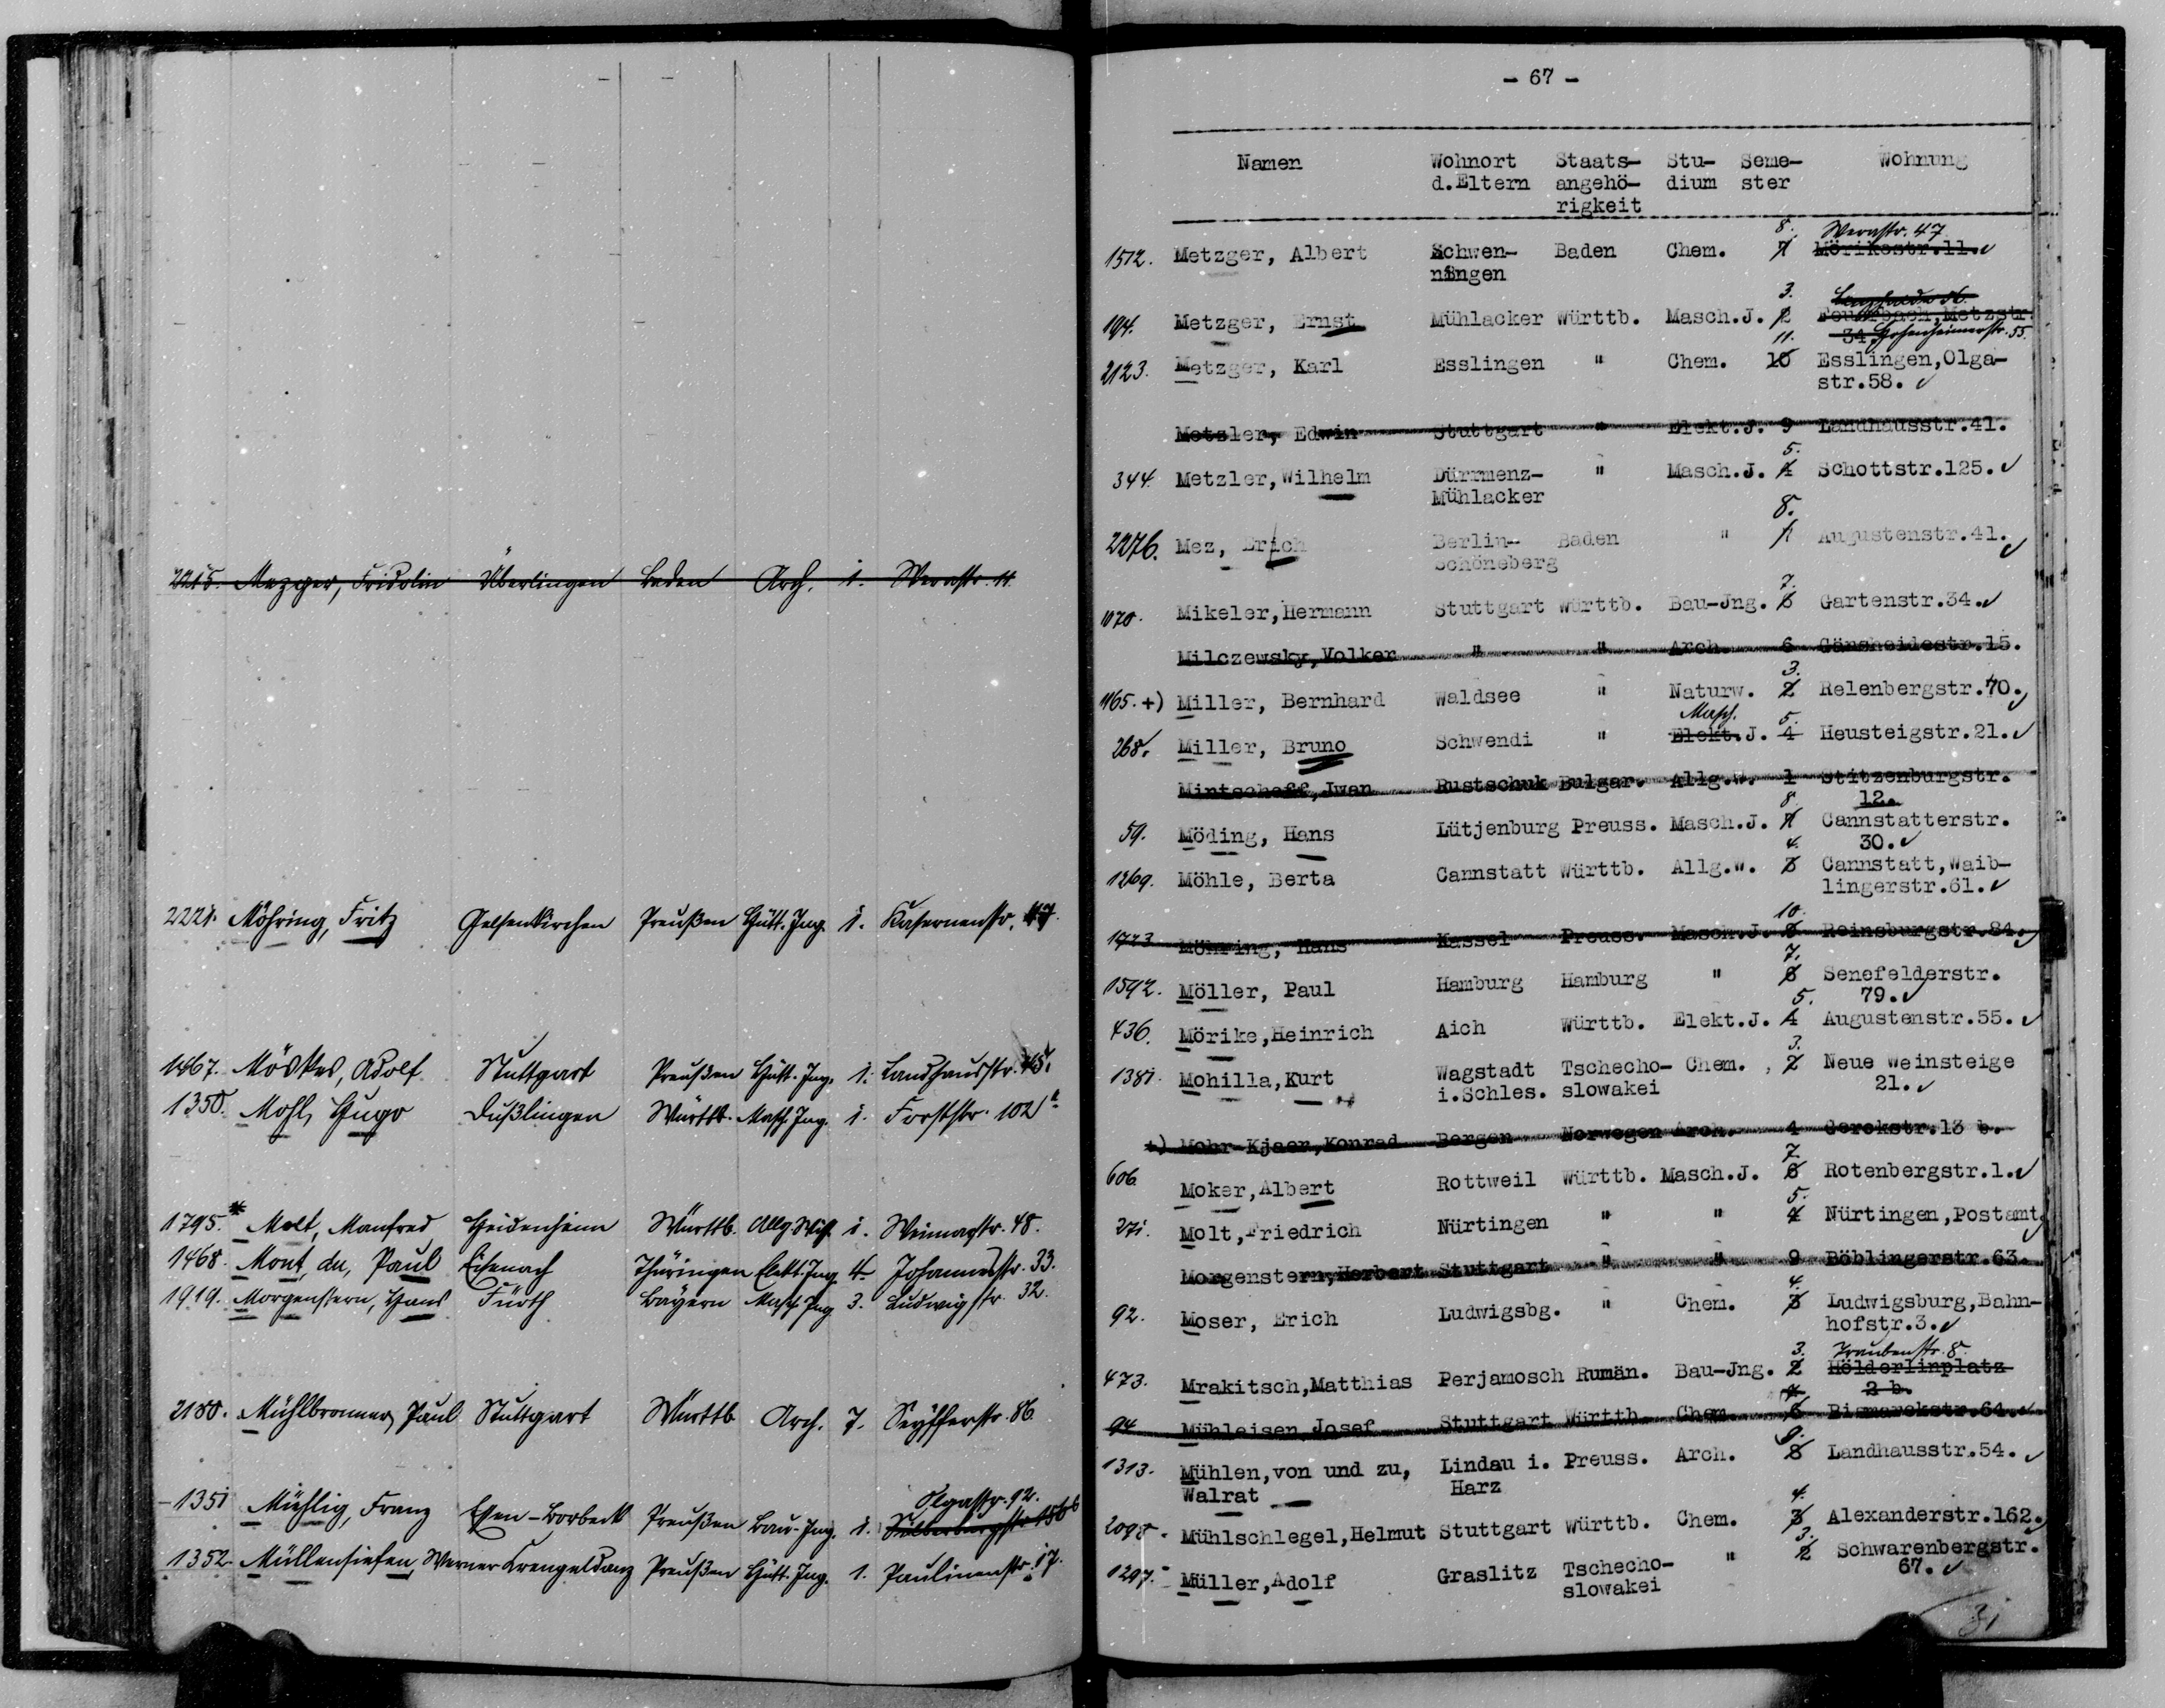 2215. Mezger, Fridolin Überlingen Baden Arch. 1. Werastr. 11.
2221. Möhring, Fritz Gelsenkirchen Preußen Hütt. Ing. 1. Kasernenstr. 47.
1467. Möskes, Adolf Stuttgart Preußen Hütt. Ing. 1. Landhausstr.
1350. Mohl, Hugo Dußlingen Württb. Masch. Ing. 1. Forststr. 102
1795. * Molt, Manfred Heidenheim Württb. Allg. Wiss. 1. Weimarstr. 48.
1468. Mont, du, Paul Eisenach Thüringen Elekt. Ing. 4. Johannesstr. 33.
1919. Morgenstern, Hans Fürth Bayern Masch. Ing. 3. Ludwigstr. 32.
2180. Mühlbronner, Paul Stuttgart Württb. Arch. 7. Seyfferstr. 86.
Olgastr. 92.
1351 Mühlig, Franz Essen-Borbeck Preußen Bau-Ing. 1. Silberburgstr.
1352. Müllensiefen, Werner Crengeldanz Preußen Hütt. Ing. 1. Paulinenstr. 17.
- 67 -
Namen Wohnort Staats- Stu- Seme- Wohnung
d.Eltern angehö- dium ster
rigkeit
8. Werastr. 47
1512. Metzger, Albert Schwen- Baden Chem. 7 Mörikestr.11.
ningen
3.
194. Metzger, Ernst Mühlacker Württb. Masch.J. 2 Feuerbach,Metzstr.
11. 34 Hohenheimerstr. 55.
2123. Metzger, Karl Esslingen " Chem. 10 Esslingen,Olga-
str.58.
Metzler, Edwin Stuttgart " Elekt.J. 9 Landhausstr.41.
5.
344. Metzler,Wilhelm Dürrmenz- " Masch.J. 4 Schottstr.125.
Mühlacker
8.
2276. Mez, Erich Berlin- Baden " 7 Augustenstr.41.
Schöneberg
7.
1070. Mikeler,Hermann Stuttgart Württb. Bau-Jng. 6 Gartenstr.34.
Milczewsky,Volker " " Arch. 6 Gänsheidestr.15.
3.
1165. +) Miller, Bernhard Waldsee " Naturw. 2 Relenbergstr.70.
Masch. 5.
268. Miller, Bruno Schwendi " Elekt.J. 4 Heusteigstr.21.
Mintschoff,Jwan Rustschuk Bulgar. Allg.W. 1 Stitzenburgstr.
8. 12.
59. Möding, Hans Lütjenburg Preuss. Masch.J. 7 Cannstatterstr.
4. 30.
1269. Möhle, Berta Cannstatt Württb. Allg.W. 3 Cannstatt,Waib-
lingerstr.61.
10.
1723 Möhring, Hans Kassel Preuss. Masch.J. Reinsburgstr.84.
7.
1592. Möller, Paul Hamburg Hamburg " 6 Senefelderstr.
5. 79.
436. Mörike,Heinrich Aich Württb. Elekt.J. 4 Augustenstr.55.
3.
1381. Mohilla,Kurt Wagstadt Tschecho- Chem. 2 Neue Weinsteige
i.Schles. slowakei 21.
+) Mohr-Kjaer,Konrad Bergen Norwegen Arch. 4 Gerokstr.13 b.
7.
606 Moker,Albert Rottweil Württb. Masch.J. 6 Rotenbergstr.1.
5.
271. Molt,Friedrich Nürtingen " " 4 Nürtingen,Postamt
Morgenstern,Herbert Stuttgart " " 9 Böblingerstr.63.
4.
92. Moser, Erich Ludwigsbg. " Chem. 3 Ludwigsburg,Bahn-
hofstr.3.
3. Traubenstr. 8.
473. Mrakitsch,Matthias Perjamosch Rumän. Bau-Jng. 2 Hölderlinplatz
2 b.
94 Mühleisen,Josef Stuttgart Württb. Chem. Bismarckstr.64.
9.
1313. Mühlen,von und zu, Lindau i. Preuss. Arch. 8 Landhausstr.54.
Walrat Harz
4.
2098. Mühlschlegel,Helmut Stuttgart Württb. Chem. 3 Alexanderstr.162.
3.
1297. Müller,Adolf Graslitz Tschecho- " 2 Schwarenbergstr.
slowakei 67.
31